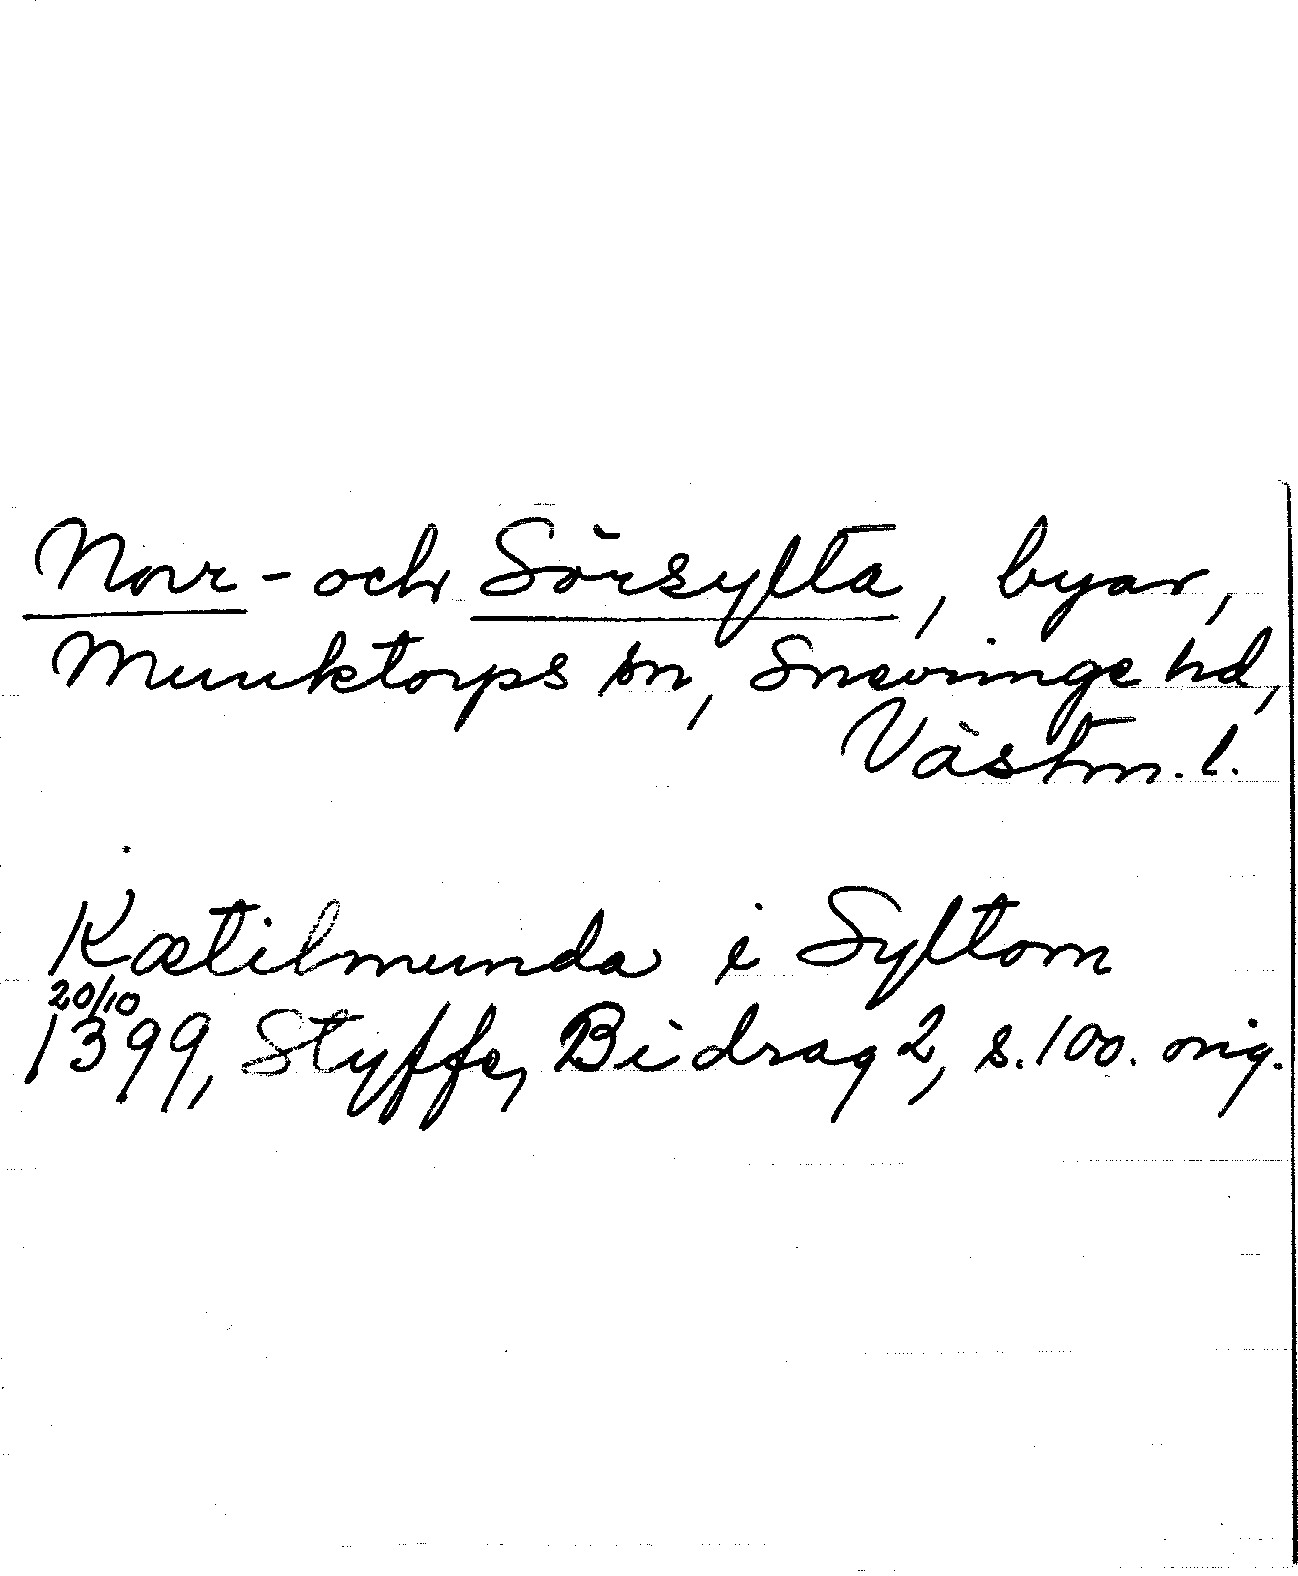 Norr- och Sörsylta, byar,
Munktorps sn, Snevringe hd,
Västm. l.
Kætilmunda i Syltom
20/10
1399, Styffe, Bidrag 2, s. 100. orig.